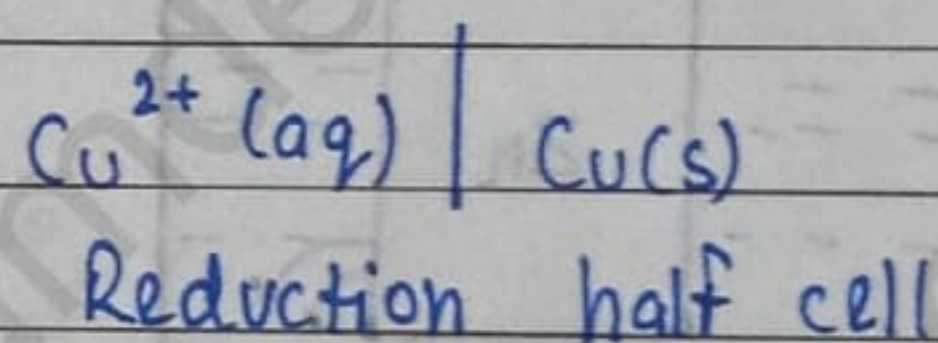 Cu²⁺ (aq) | Cu(s)
Reduction half cell